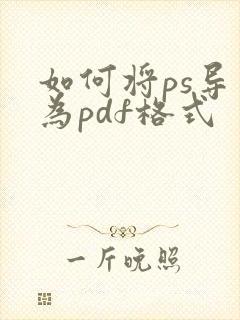 如何将ps导
为pdf格式
一斤晚照